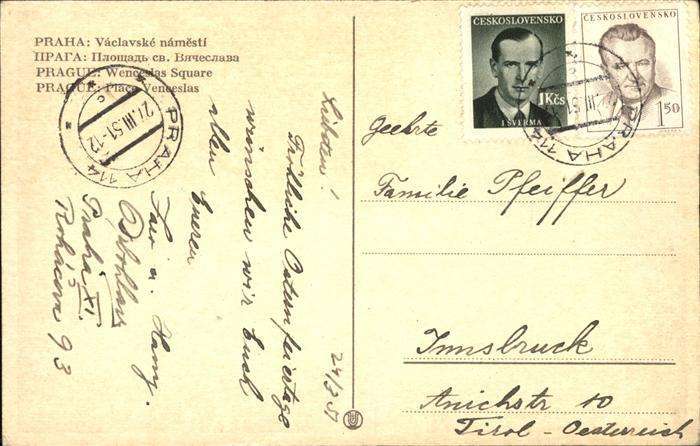 PRAHA: Václavské náměstí
ПРАГА: Площадь св. Вячеслава
PRAGUE: Wenceslas Square
PRAGUE: Place Venceslas
PRAHA 114
27.III.51-12
ČESKOSLOVENSKO
1Kčs
J. ŠVERMA
ČESKOSLOVENSKO
1 50
PRAHA 114
Liebsten!
Fröhliche Osternfeiertage
wünschen wir Euch
allen
Eueren
u. Hany.
Praha XI.
Roháčova 93
24/3 51
Geehrte
Familie Pfeiffer
Innsbruck
Anichstr 10
Tirol - Oesterreich